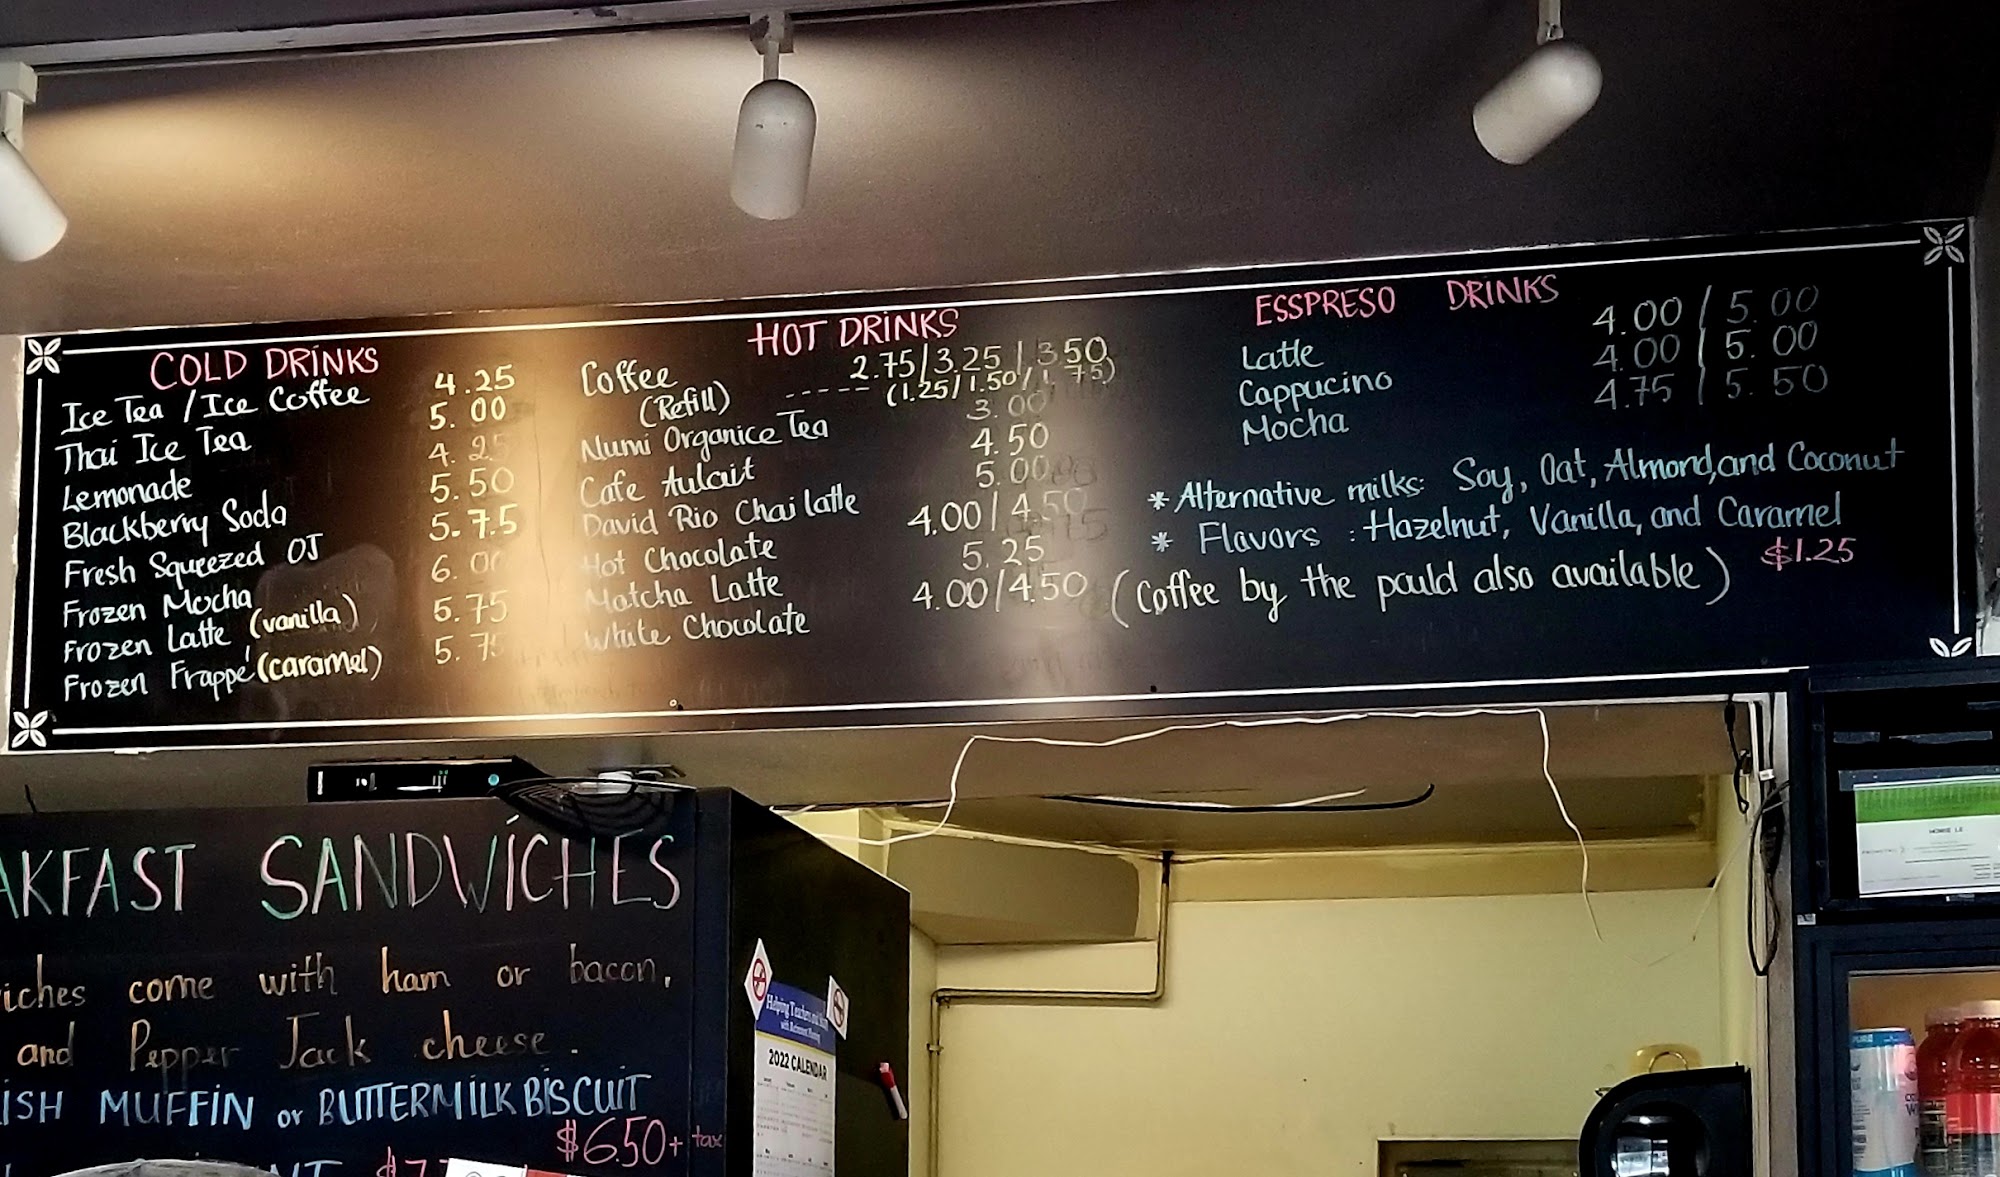 COLD DRINKS
Ice Tea / Ice Coffee 4.25
Thai Ice Tea 5.00
Lemonade 4.25
Blackberry Soda 5.50
Fresh Squeezed OJ 5.75
Frozen Mocha 6.00
Frozen Latte (vanilla) 5.75
Frozen Frappé (caramel) 5.75
HOT DRINKS
Coffee 2.75/3.25/3.50
(Refill) ----- (1.25/1.50/1.75)
Numi Organice Tea 3.00
Cafe Aulait 4.50
David Rio Chai latte 5.00
Hot Chocolate 4.00/4.50
Matcha Latte 5.25
White Chocolate 4.00/4.50
ESSPRESO DRINKS
Latte 4.00/5.00
Cappucino 4.00/5.00
Mocha 4.75/5.50
* Alternative milks: Soy, Oat, Almond, and Coconut
* Flavors : Hazelnut, Vanilla, and Caramel
$1.25
(Coffee by the pauld also available)
AKFAST SANDWICHES
iches come with ham or bacon,
and Pepper Jack cheese.
ISH MUFFIN or BUTTERMILK BISCUIT
$6.50+ tax
Helping Teachers and
with Retirement Planning
2022 CALENDAR
HOWIE LE